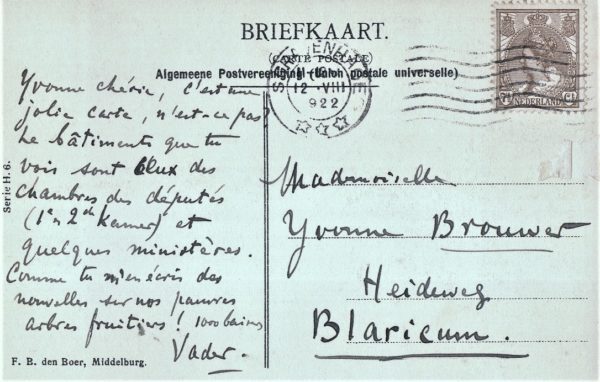 BRIEFKAART.
(CARTE POSTALE)
Algemeene Postvereeniging (Union postale universelle)
12 VIII
922
NEDERLAND
Yvonne chérie, c'est une
jolie carte, n'est-ce pas?
Le bâtiments que tu
vois sont ceux des
chambres des députés
(1e en 2de Kamer) et
quelques ministères.
Comme tu m'en écris des
nouvelles sur nos pauvres
arbres fruitiers! 1000 baisers
Vader.
Mademoiselle
Yvonne Brouwer
Heideweg
Blaricum.
Serie H. 6.
F. B. den Boer, Middelburg.